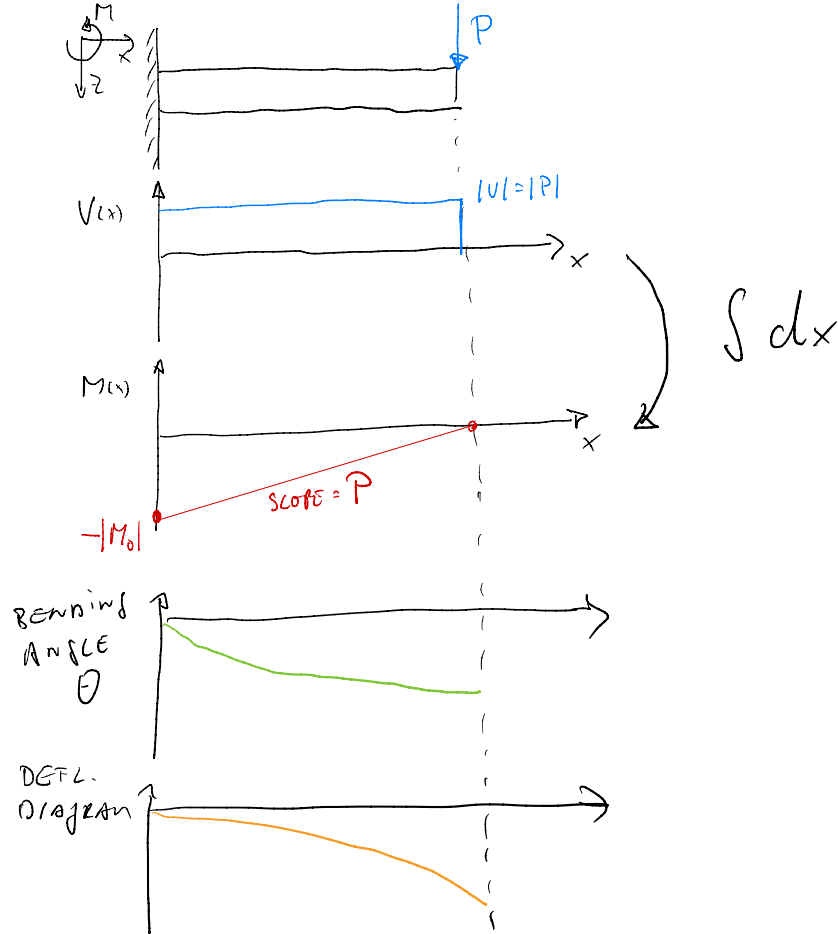 M
x
z
P
V(x)
|V|=|P|
x
∫ dx
M(x)
x
SCOPE = P
-|M₀|
BENDING
ANGLE
θ
DEFL.
DIAGRAM